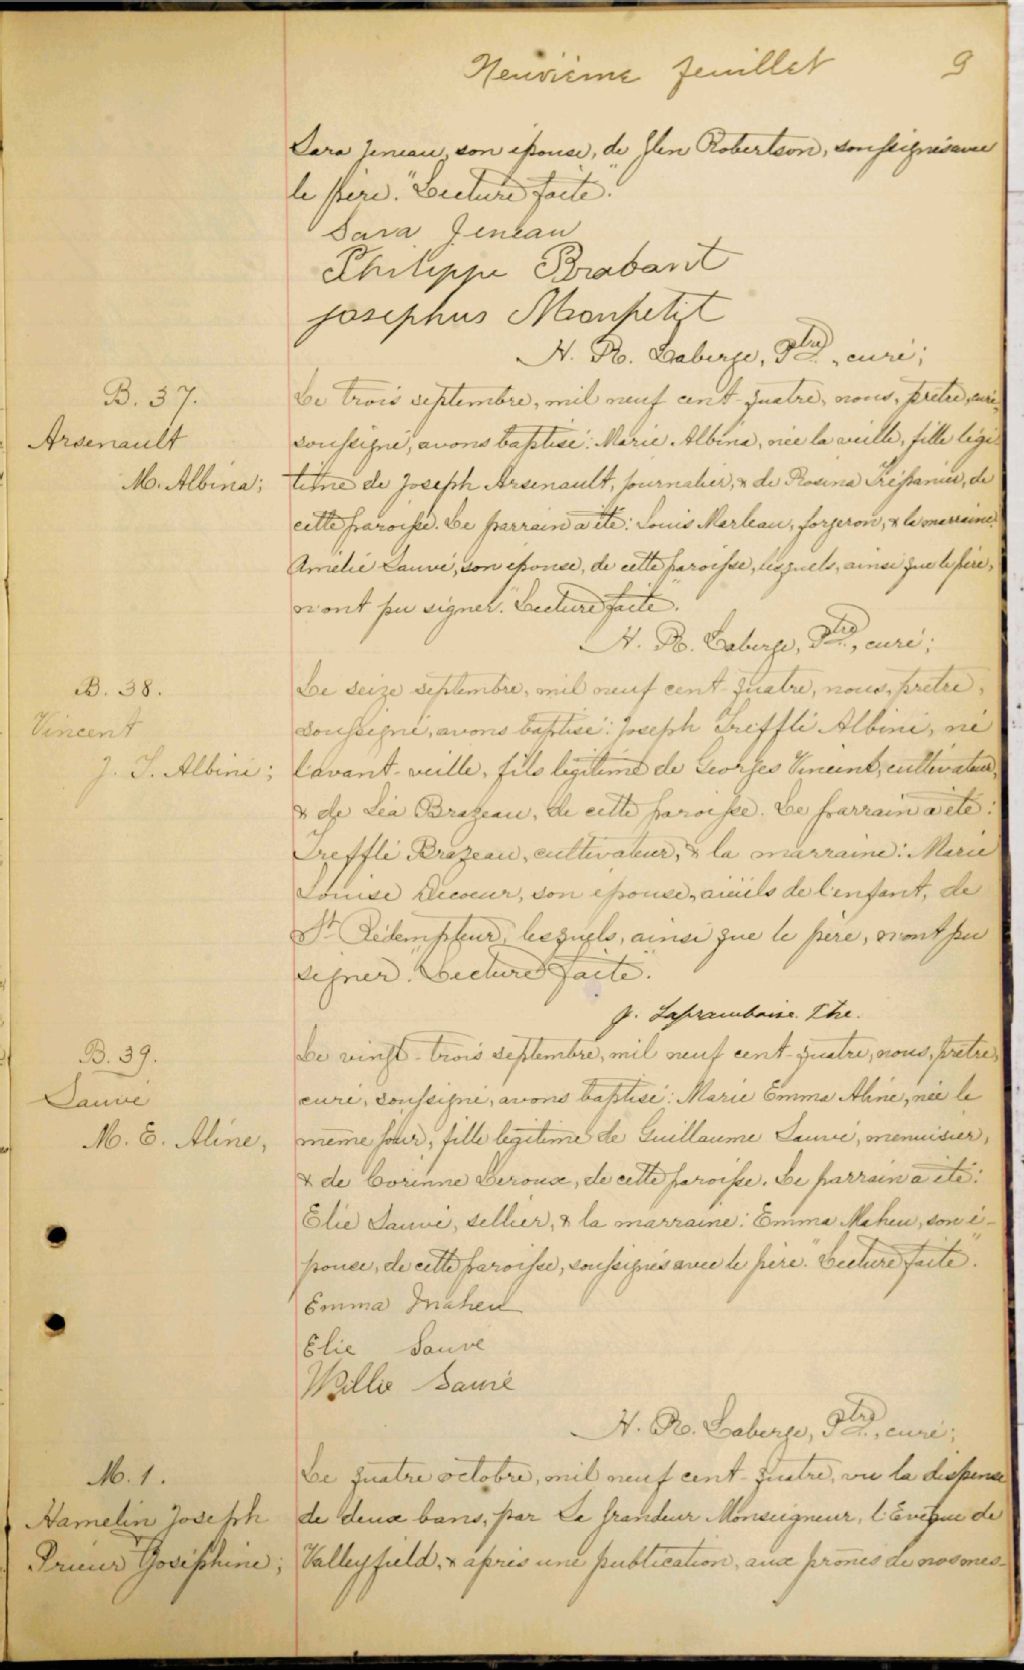 Neuvième feuillet 9
Sara Jeneau, son épouse, de Glen Robertson, soussignés avec
le père. "Lecture faite".
Sara Jeneau
Philippe Brabant
Josephus Monpetit
H. R. Laberge, Ptre, curé;
B. 37.
Arsenault
M. Albina;
Le trois septembre, mil neuf cent-quatre, nous, prêtre, curé,
soussigné, avons baptisé: Marie Albina, née la veille, fille légi-
time de Joseph Arsenault, journalier, & de Rosina Trépanier, de
cette paroisse. Le parrain a été: Louis Marleau, forgeron, & la marraine:
Amélie Sauvé, son épouse, de cette paroisse, lesquels, ainsi que le père,
n'ont pu signer. "Lecture faite".
H. R. Laberge, Ptre, curé;
B. 38.
Vincent
J. T. Albini;
Le seize septembre, mil neuf cent-quatre, nous, prêtre,
soussigné, avons baptisé: Joseph Trefflé Albini, né
l'avant-veille, fils légitime de Georges Vincent, cultivateur,
& de Léa Brazeau, de cette paroisse. Le parrain a été:
Trefflé Brazeau, cultivateur, & la marraine: Marie
Louise Decoeur, son épouse, aïeuls de l'enfant, de
St Rédempteur, lesquels, ainsi que le père, n'ont pu
signer. "Lecture faite".
J. Laframboise. Thé.
B. 39.
Sauvé
M. E. Aline,
Le vingt-trois septembre, mil neuf cent-quatre, nous, prêtre,
curé, soussigné, avons baptisé: Marie Emma Aline, née le
même jour, fille légitime de Guillaume Sauvé, menuisier,
& de Corinne Leroux, de cette paroisse. Le parrain a été:
Elie Sauvé, sellier, & la marraine: Emma Maheu, son é-
pouse, de cette paroisse, soussignés avec le père. "Lecture faite".
Emma Maheu
Elie Sauvé
Willie Sauvé
H. R. Laberge, Ptre, curé;
M. 1.
Hamelin Joseph
Prieur Joséphine;
Le quatre octobre, mil neuf cent-quatre, vu la dispense
de deux bans, par Sa Grandeur Monseigneur, l'Evêque de
Valleyfield, & après une publication, aux prônes de nos mes-